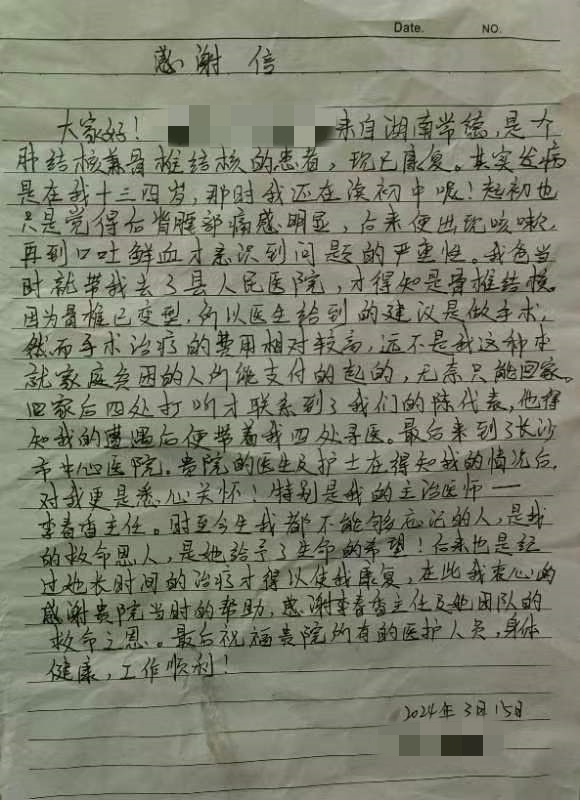 Date.
NO.
感谢信
大家好！来自湖南常德，是个
肺结核兼骨椎结核的患者，现已康复。其实发病
是在我十三四岁，那时我还在读初中呢！起初也
只是觉得后背腰部痛感明显，后来便出现咳嗽，
再到口吐鲜血才意识到问题的严重性。我爸当
时就带我去了县人民医院，才得知是骨椎结核。
因为骨椎已变型，所以医生给到的建议是做手术，
然而手术治疗的费用相对较高，远不是我这种本
就家庭贫困的人所能支付的起的，无奈只能回家。
回家后四处打听才联系到了我们的陈代表，他得
知我的遭遇后便带着我四处寻医。最后来到了长沙
市中心医院。贵院的医生及护士在得知我的情况后，
对我更是悉心关怀！特别是我的主治医师——
李春香主任。时至今生我都不能够忘记的人，是我
的救命恩人，是她给予了生命的希望！后来也是经
过她长时间的治疗才得以使我康复，在此我衷心的
感谢贵院当时的帮助，感谢李春香主任及她团队的
救命之恩。最后祝福贵院所有的医护人员，身体
健康，工作顺利！
2024年3月15日